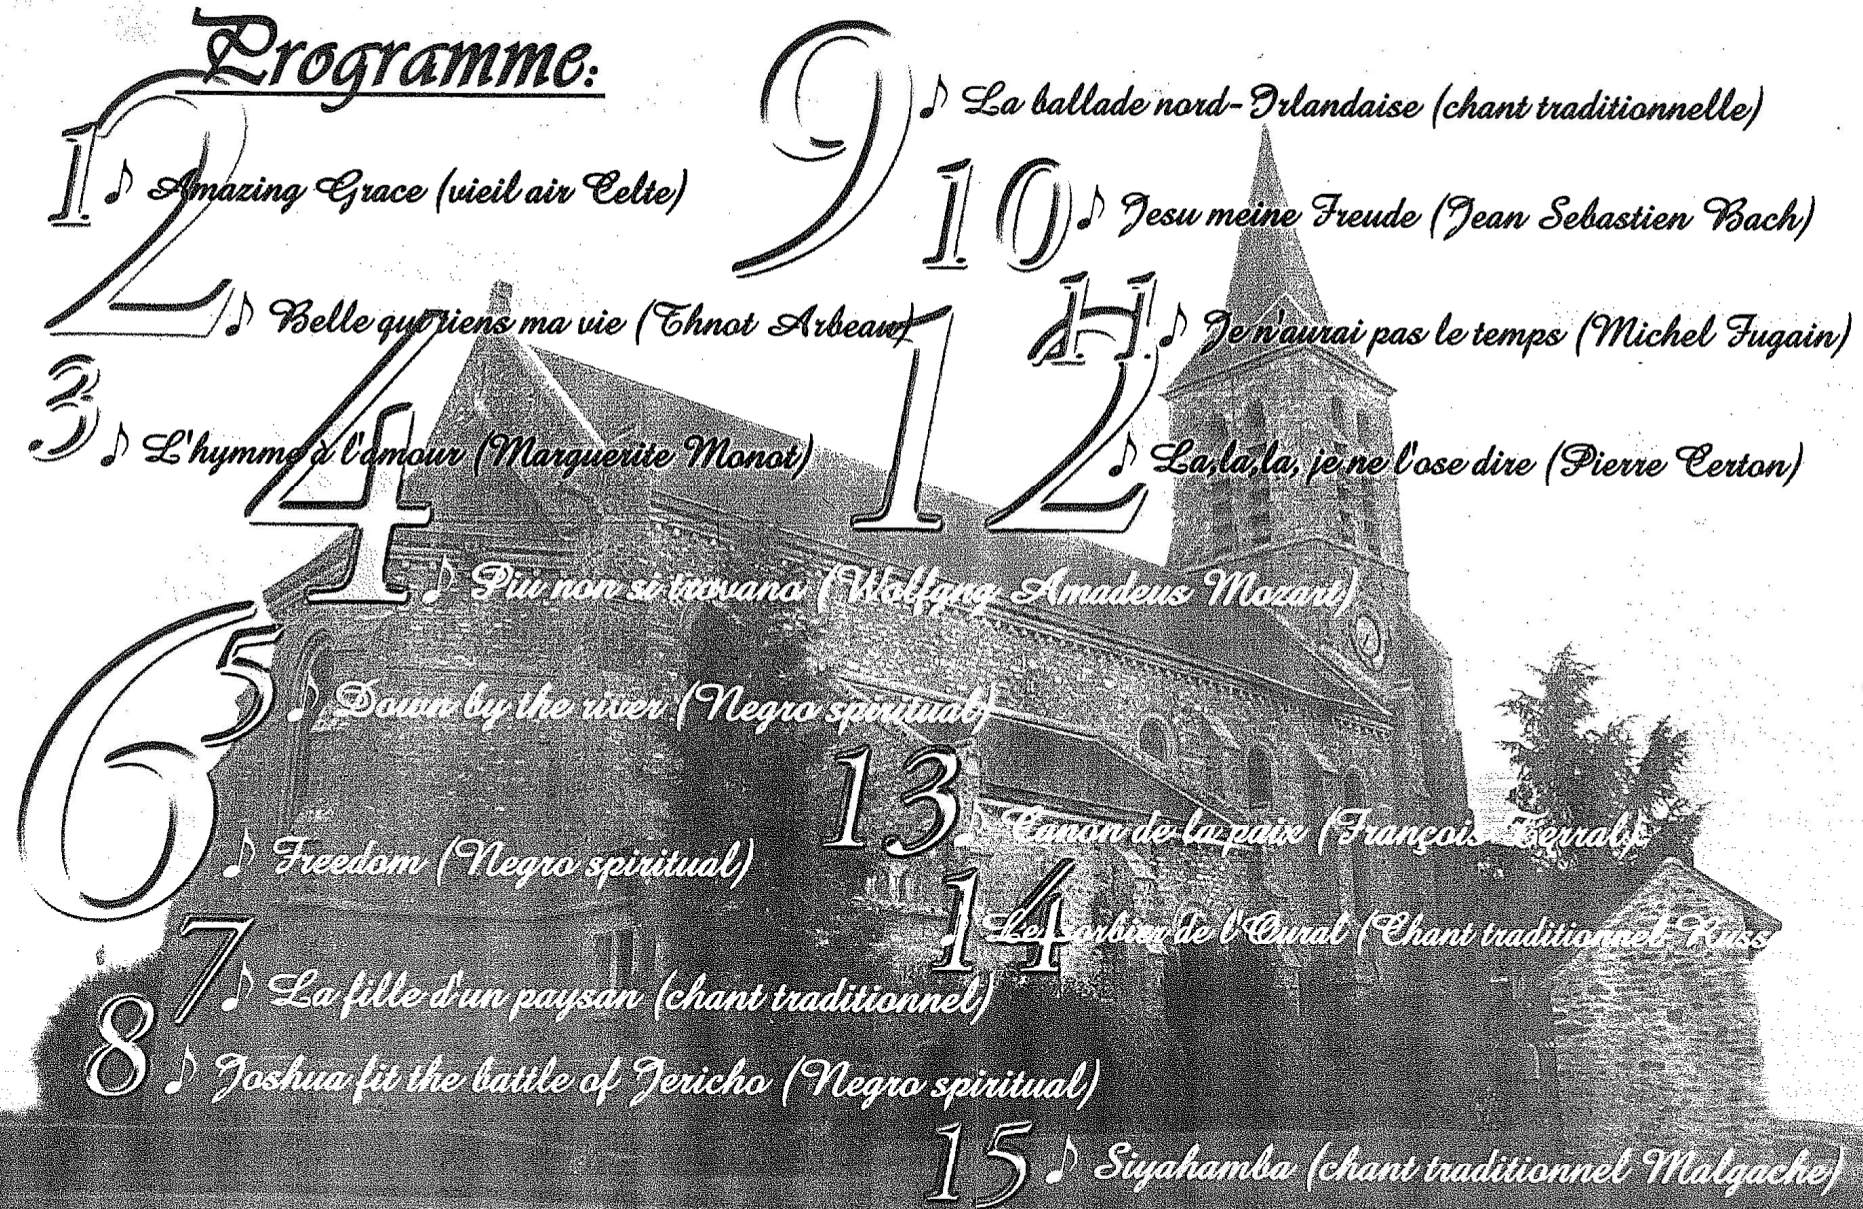 Programme:
1 ♪ Amazing Grace (vieil air Celte)
2 ♪ Belle qui tiens ma vie (Thnot Arbeau)
3 ♪ L'hymme à l'amour (Marguerite Monot)
4 ♪ Piu non si trovano (Wolfgng Amadeus Mozart)
5 ♪ Down by the river (Negro spiritual)
6 ♪ Freedom (Negro spiritual)
7 ♪ La fille d'un paysan (chant traditionnel)
8 ♪ Joshua fit the battle of Jericho (Negro spiritual)
9 ♪ La ballade nord-Irlandaise (chant traditionnelle)
10 ♪ Jesu meine Freude (Jean Sebastien Bach)
11 ♪ Je n'aurai pas le temps (Michel Fugain)
12 ♪ La, la, la, je ne l'ose dire (Pierre Certon)
13 ♪ Canon de la paix (François Terral)
14 ♪ Le sorbier de l'Oural (Chant traditionnel Russ
15 ♪ Siyahamba (chant traditionnel Malgache)